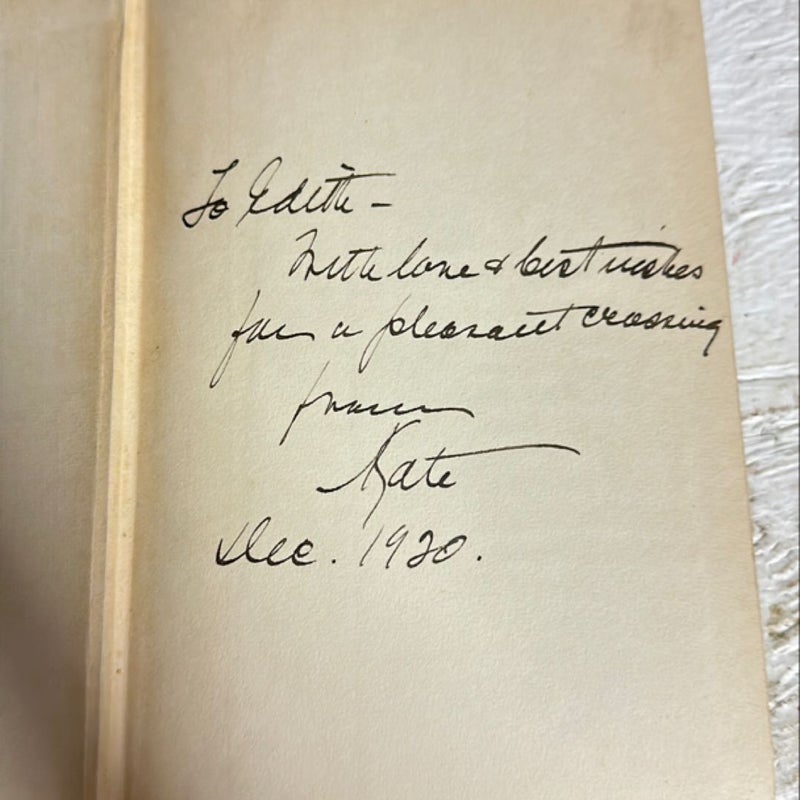 To Edith –
With love & best wishes
for a pleasant crossing
from
Kate
Dec. 1920.